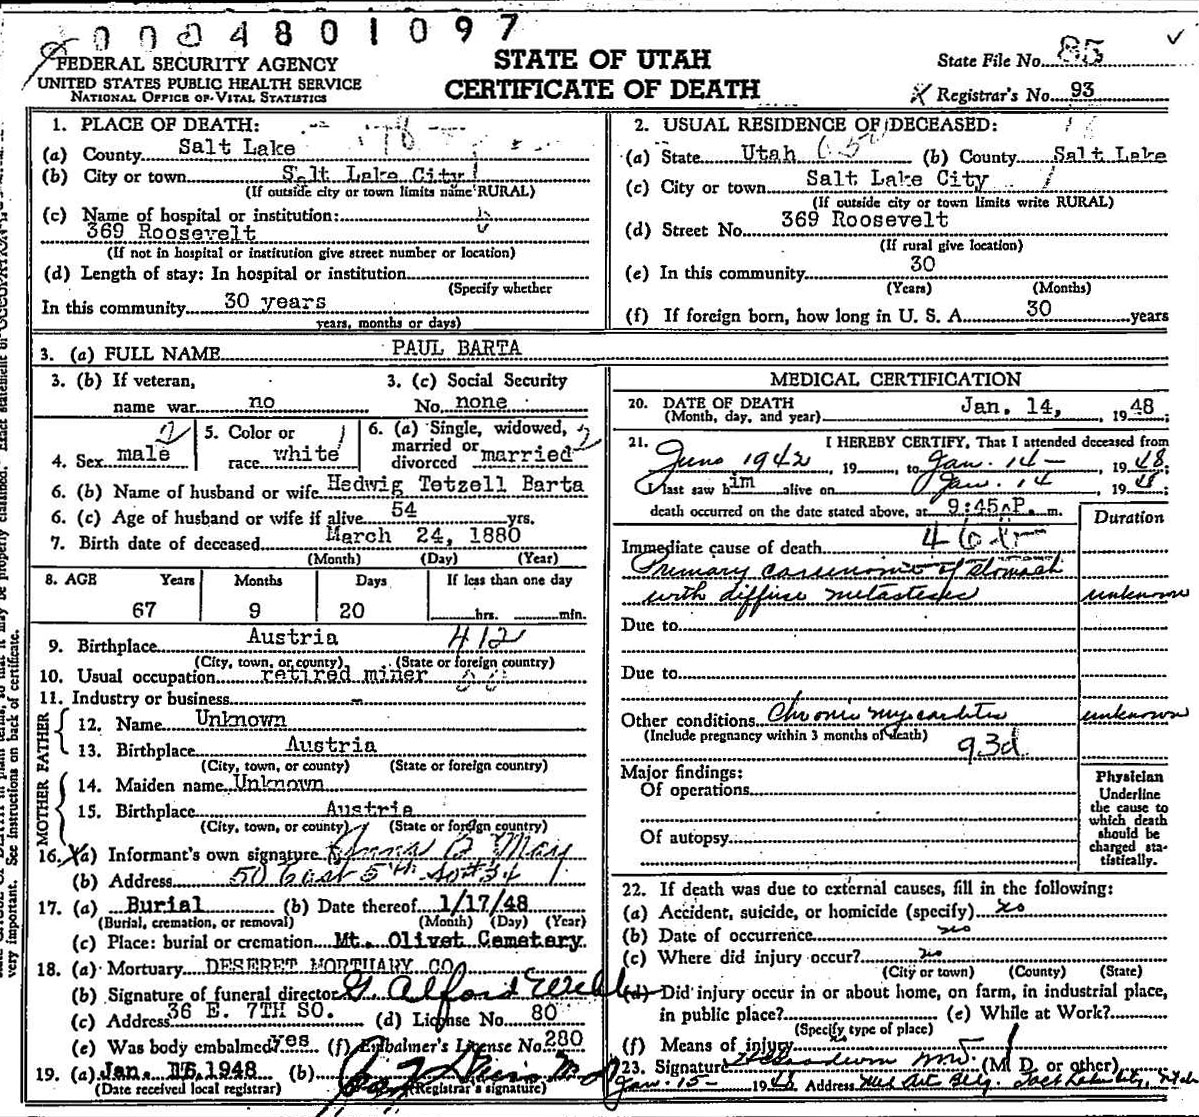 0004801097
FEDERAL SECURITY AGENCY
UNITED STATES PUBLIC HEALTH SERVICE
NATIONAL OFFICE OF VITAL STATISTICS
STATE OF UTAH
CERTIFICATE OF DEATH
State File No. 85
Registrar's No. 93
1. PLACE OF DEATH:
(a) County Salt Lake
(b) City or town Salt Lake City
(If outside city or town limits name RURAL)
(c) Name of hospital or institution:
369 Roosevelt
(If not in hospital or institution give street number or location)
(d) Length of stay: In hospital or institution
(Specify whether
In this community 30 years
years, months or days)
2. USUAL RESIDENCE OF DECEASED:
(a) State Utah (b) County Salt Lake
(c) City or town Salt Lake City
(If outside city or town limits write RURAL)
(d) Street No. 369 Roosevelt
(If rural give location)
(e) In this community 30
(Years) (Months)
(f) If foreign born, how long in U. S. A. 30 years
3. (a) FULL NAME PAUL BARTA
3. (b) If veteran,
name war no
3. (c) Social Security
No. none
4. Sex male
5. Color or
race white
6. (a) Single, widowed,
married or
divorced married
6. (b) Name of husband or wife Hedwig Tetzell Barta
6. (c) Age of husband or wife if alive 54 yrs.
7. Birth date of deceased March 24, 1880
(Month) (Day) (Year)
8. AGE Years Months Days If less than one day
67 9 20 hrs. min.
9. Birthplace Austria 412
(City, town, or county) (State or foreign country)
10. Usual occupation retired miner
11. Industry or business -
FATHER
12. Name Unknown
13. Birthplace Austria
(City, town, or county) (State or foreign country)
MOTHER
14. Maiden name Unknown
15. Birthplace Austria
(City, town, or county) (State or foreign country)
16. (a) Informant's own signature Anna B May
(b) Address 50 East 5th So #34
17. (a) Burial (b) Date thereof 1/17/48
(Burial, cremation, or removal) (Month) (Day) (Year)
(c) Place: burial or cremation Mt. Olivet Cemetary
18. (a) Mortuary DESERET MORTUARY CO
(b) Signature of funeral director G. Alford Webb
(c) Address 36 E. 7TH SO. (d) License No. 80
(e) Was body embalmed? yes (f) Embalmer's License No. 280
19. (a) Jan. 16, 1948 (b)
(Date received local registrar) (Registrar's signature)
MEDICAL CERTIFICATION
20. DATE OF DEATH Jan. 14, 1948
(Month, day, and year)
21. I HEREBY CERTIFY, That I attended deceased from
June 1942, 19 , to Jan. 14 - , 1948;
I last saw him alive on Jan. 14 1948;
death occurred on the date stated above, at 9:45 P. m.
Duration
Immediate cause of death
Primary carcinoma of stomach
with diffuse metasteses unknown
Due to
Due to
Other conditions Chronic myocarditis unknown
(Include pregnancy within 3 months of death)
93d
Major findings:
Of operations
Of autopsy
Physician
Underline
the cause to
which death
should be
charged sta-
tistically.
22. If death was due to external causes, fill in the following:
(a) Accident, suicide, or homicide (specify) no
(b) Date of occurrence no
(c) Where did injury occur? no
(City or town) (County) (State)
(d) Did injury occur in or about home, on farm, in industrial place,
in public place? (e) While at Work?
(Specify type of place)
(f) Means of injury no
23. Signature (M. D. or other)
Jan. 15 - 1948 Address Med Art Bldg. Salt Lake City, Utah
very important. See instructions on back of certificate.